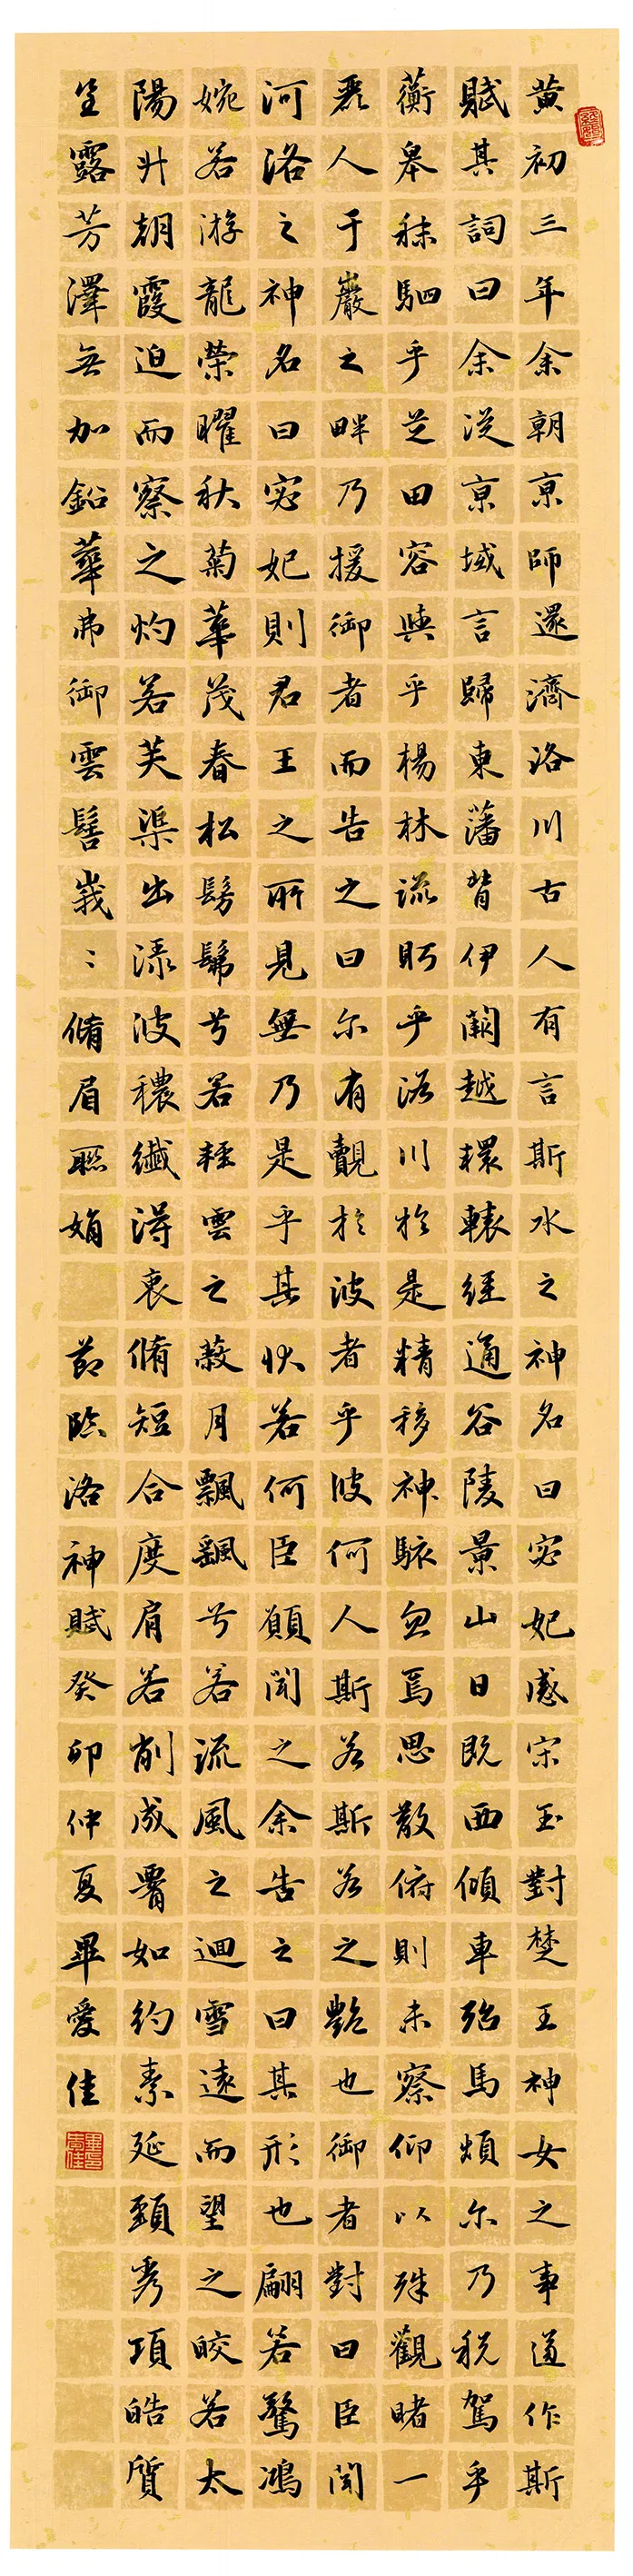 黄初三年余朝京師還濟洛川古人有言斯水之神名曰宓妃感宋玉對楚王神女之事遂作斯
賦其詞曰余從京域言歸東藩背伊闕越轘轅經通谷陵景山日既西傾車殆馬煩尔乃税駕乎
蘅皋秣駟乎芝田容與乎楊林流眄乎洛川於是精移神駭忽焉思散俯則未察仰以殊觀睹一
麗人于巖之畔乃援御者而告之曰尔有覿於彼者乎彼何人斯若斯若之艷也御者對曰臣聞
河洛之神名曰宓妃則君王之所見無乃是乎其狀若何臣願聞之余告之曰其形也翩若驚鴻
婉若游龍榮曜秋菊華茂春松髣髴兮若輕雲之蔽月飄飖兮若流風之迴雪遠而望之皎若太
陽升朝霞迫而察之灼若芙渠出渌波穠纖得衷脩短合度肩若削成署如約素延頸秀項皓質
呈露芳澤無加鉛華弗御雲髻峩〻脩眉聯娟 節臨洛神賦癸卯仲夏畢愛佳